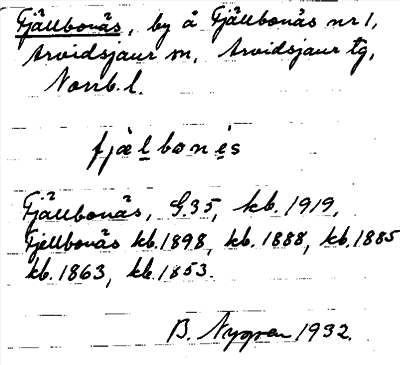 Fjällbonäs, by å Fjällbonäs nr 1,
Arvidsjaur sn, Arvidsjaur tg,
Norrb. l.
fjàlbonés
Fjällbonäs, G.35, kb. 1919,
Fjellbonäs kb. 1898, kb. 1888, kb. 1885
kb. 1863, kb. 1853.
B. Nygren 1932.